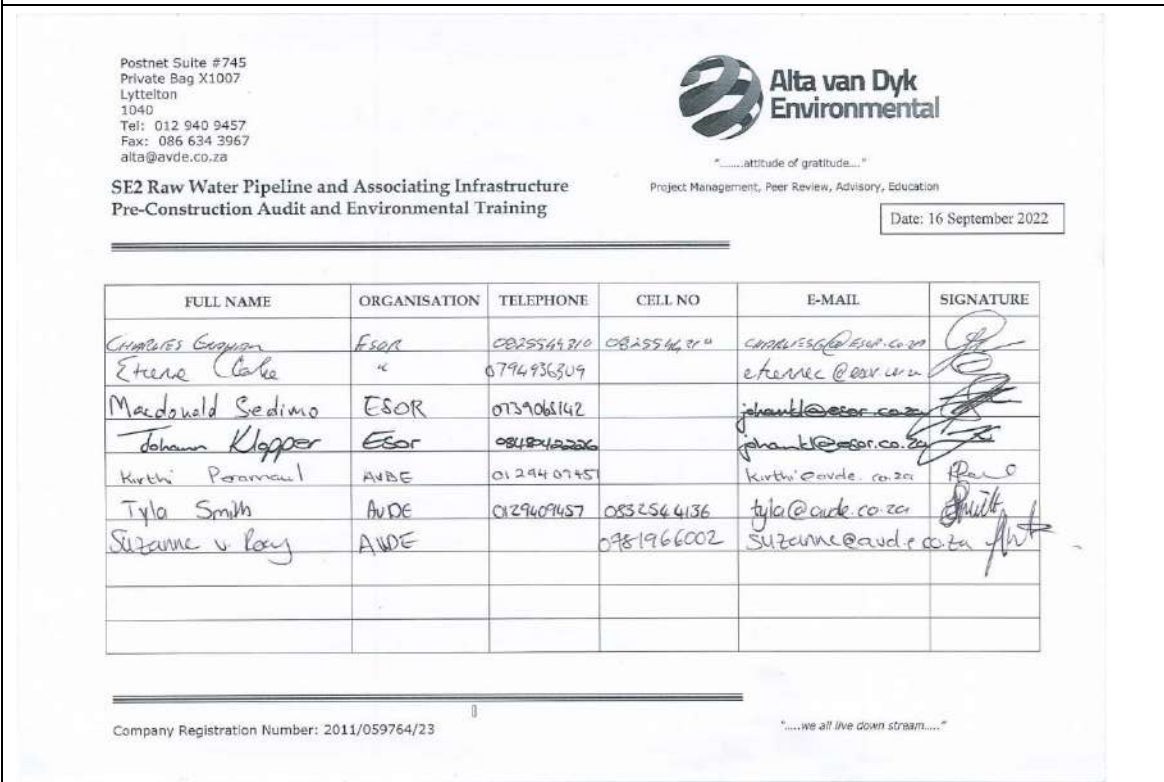 Postnet Suite #745
Private Bag X1007
Lyttelton
1040
Tel: 012 940 9457
Fax: 086 634 3967
alta@avde.co.za
Alta van Dyk
Environmental
".......attitude of gratitude...."
Project Management, Peer Review, Advisory, Education
SE2 Raw Water Pipeline and Associating Infrastructure
Pre-Construction Audit and Environmental Training
Date: 16 September 2022
FULL NAME ORGANISATION TELEPHONE CELL NO E-MAIL SIGNATURE
CHARLES ESOR
"
Macdonald Sedimo ESOR 0739068142 johankl@esor.co.za
Johann Klopper Esor johankl@esor.co.za
Kirthi AVDE 0129409457 kirthi@avde.co.za
Tyla Smith AVDE 0129409457 0832544136 tyla@avde.co.za
Suzanne v. AVDE 0981966002 suzanne@avde.co.za
Company Registration Number: 2011/059764/23
".....we all live down stream....."